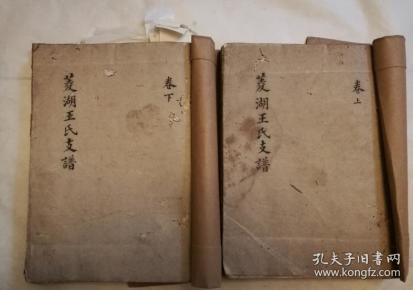 菱湖王氏支譜
卷上
菱湖王氏支譜
卷下
孔夫子旧书网
www.kongfz.com